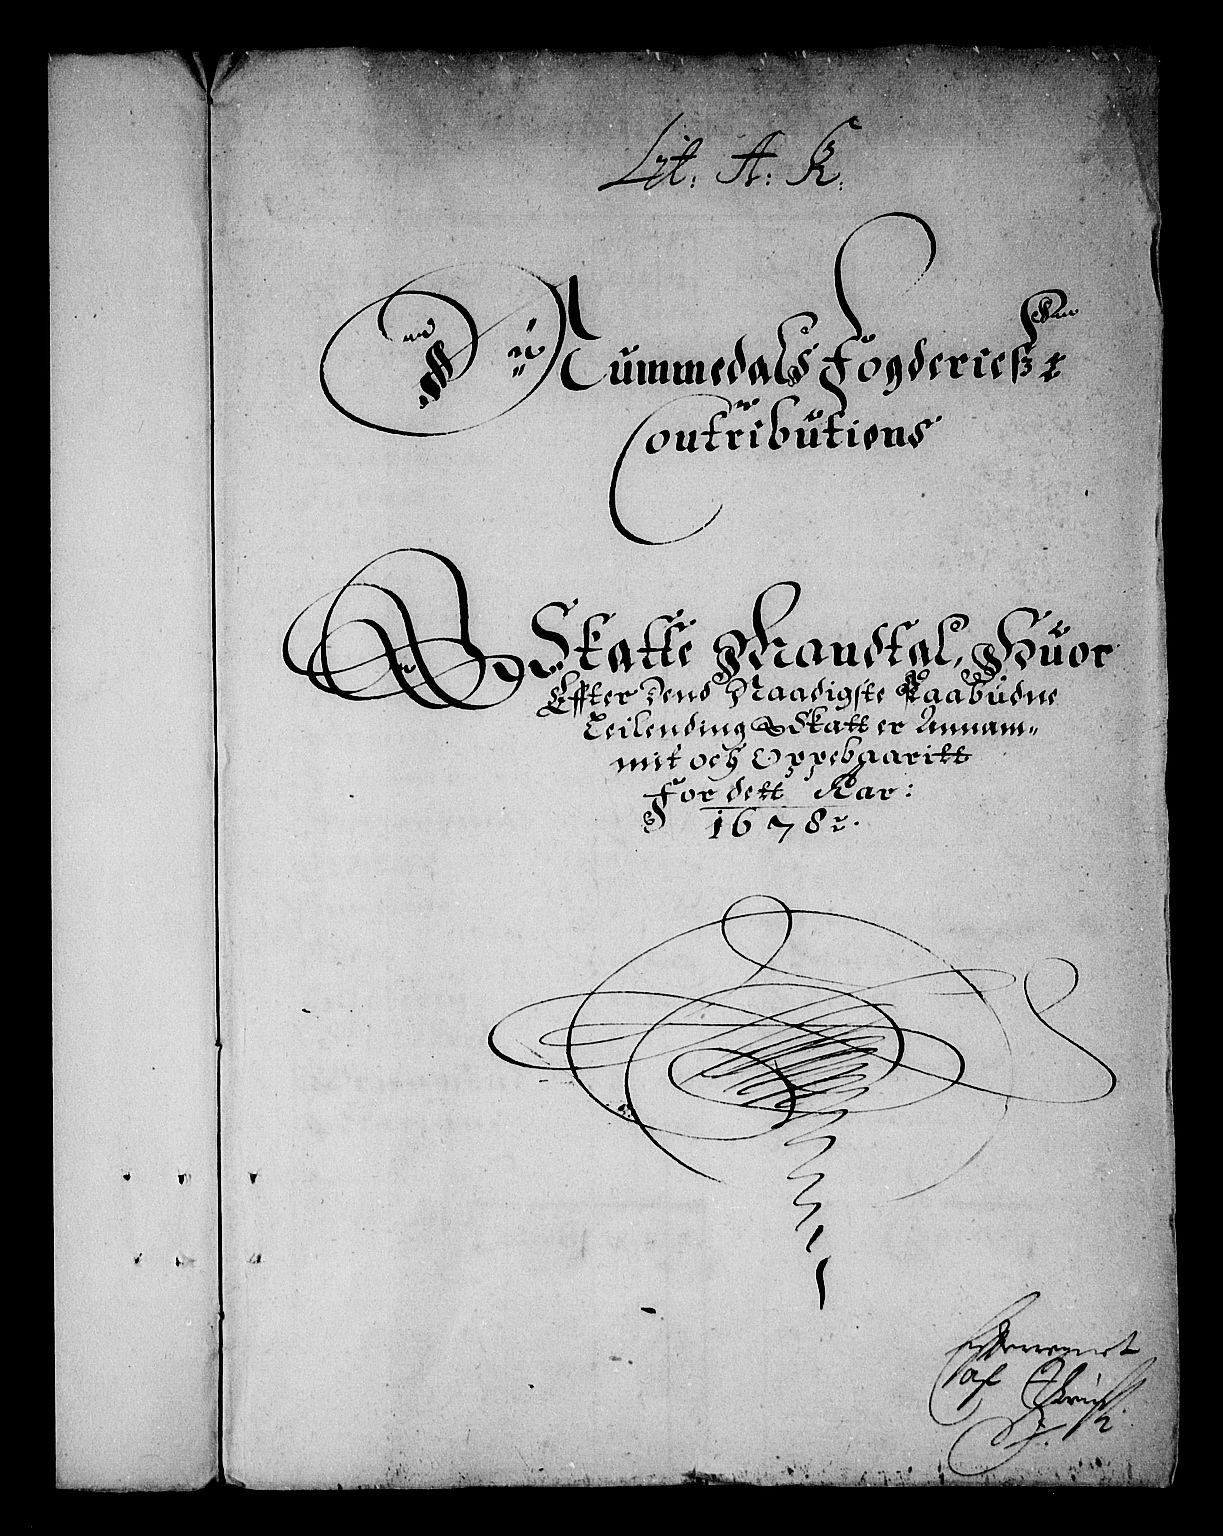 Lit. A. K.
Nummedals Fogderiesz
Contributions
Skatte Mandtal, Huor
Effter dend Naadigste Paabudne
Teilending Skatter Annam=
mit och Oppebaaritt
For dett Aar:
1678
af